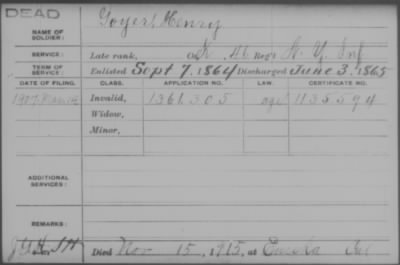 DEAD
NAME OF SOLDIER: Goyer Henry
SERVICE: Late rank, Co. K, 46 Reg't N. Y. Inf
TERM OF SERVICE: Enlisted Sept 7, 1864 Discharged June 3, 1865
DATE OF FILING. CLASS. APPLICATION NO. LAW. CERTIFICATE NO.
1907 Mar Invalid, 1361.305 age 1135594
Widow,
Minor,
ADDITIONAL SERVICES:
REMARKS:
Died Nov 15, 1915, at Eureka Cal